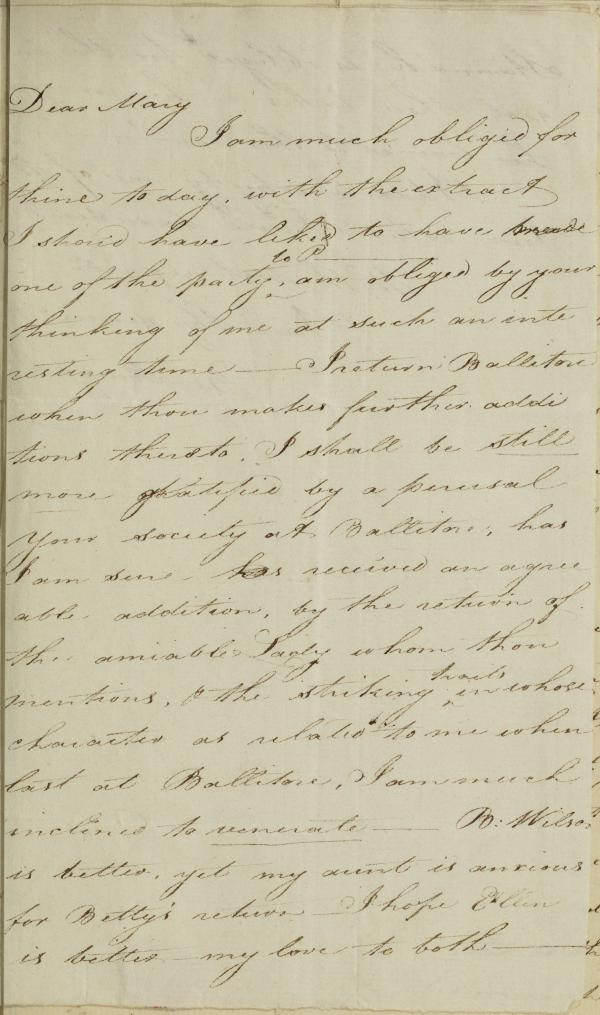 Dear Mary
I am much obliged for
thine to day, with the extract
I should have liked to have made
to P
one of the party, am obliged by your
thinking of me at such an inte
resting time — I return Ballitore
when thou makes further addi
tions thereto, I shall be still
more gratified by a perusal
Your society at Ballitore, has
I am sure has received an agree
able addition, by the return of
the amiable Lady whom thou
traits
mentions, & the striking in whose
character as related to me when
last at Ballitore, I am much
inclined to venerate — B: Wilson
is better, yet my aunt is anxious
for Betty's return — I hope Ellen
is better — my love to both —